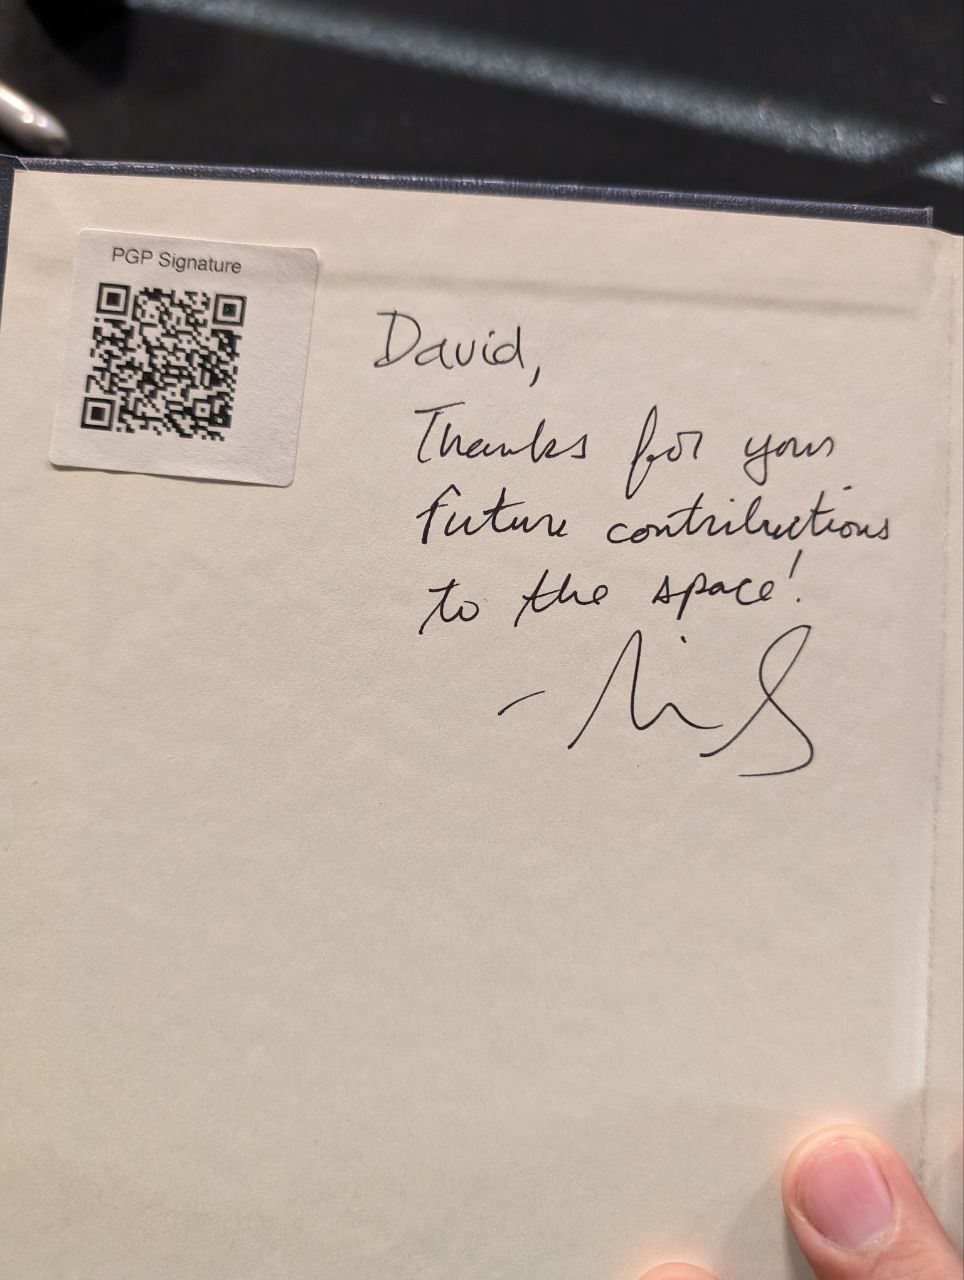 PGP Signature
David,
Thanks for your
future contributions
to the space!